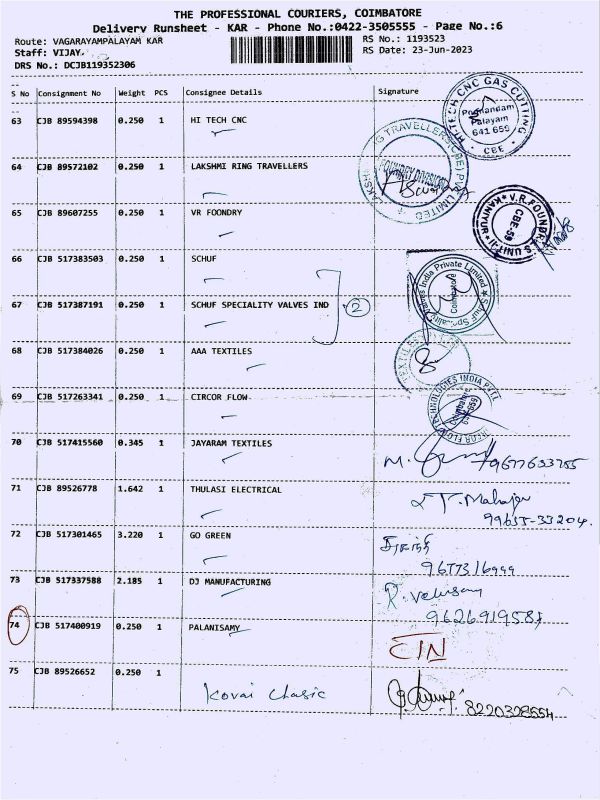 THE PROFESSIONAL COURIERS, COIMBATORE
Delivery Runsheet - KAR - Phone No.:0422-3505555 - Page No.:6
Route: VAGARAYAMPALAYAM KAR
RS No.: 1193523
Staff: VIJAY.
RS Date: 23-Jun-2023
DRS No.: DCJB119352306
S No Consignment No Weight PCS Consignee Details Signature
63 CJB 89594398 0.250 1 HI TECH CNC
HI-TECH CNC GAS CUTTING Palayam 641 659 CBE
64 CJB 89572102 0.250 1 LAKSHMI RING TRAVELLERS
FOUNDRY DIVISION
65 CJB 89607255 0.250 1 VR FOONDRY
V.R.FOUNDRIES UNIT-II KANIYUR CBE-59
66 CJB 517383503 0.250 1 SCHUF
67 CJB 517387191 0.250 1 SCHUF SPECIALITY VALVES IND 2
India Private Limited Coimbatore
68 CJB 517384026 0.250 1 AAA TEXTILES
69 CJB 517263341 0.250 1 CIRCOR FLOW
TECHNOLOGIES INDIA
70 CJB 517415560 0.345 1 JAYARAM TEXTILES
71 CJB 89526778 1.642 1 THULASI ELECTRICAL
72 CJB 517301465 3.220 1 GO GREEN
9677316999
73 CJB 517337588 2.185 1 DJ MANUFACTURING
74 CJB 517400919 0.250 1 PALANISAMY
75 CJB 89526652 0.250 1 Kovai Clasic
8220328554